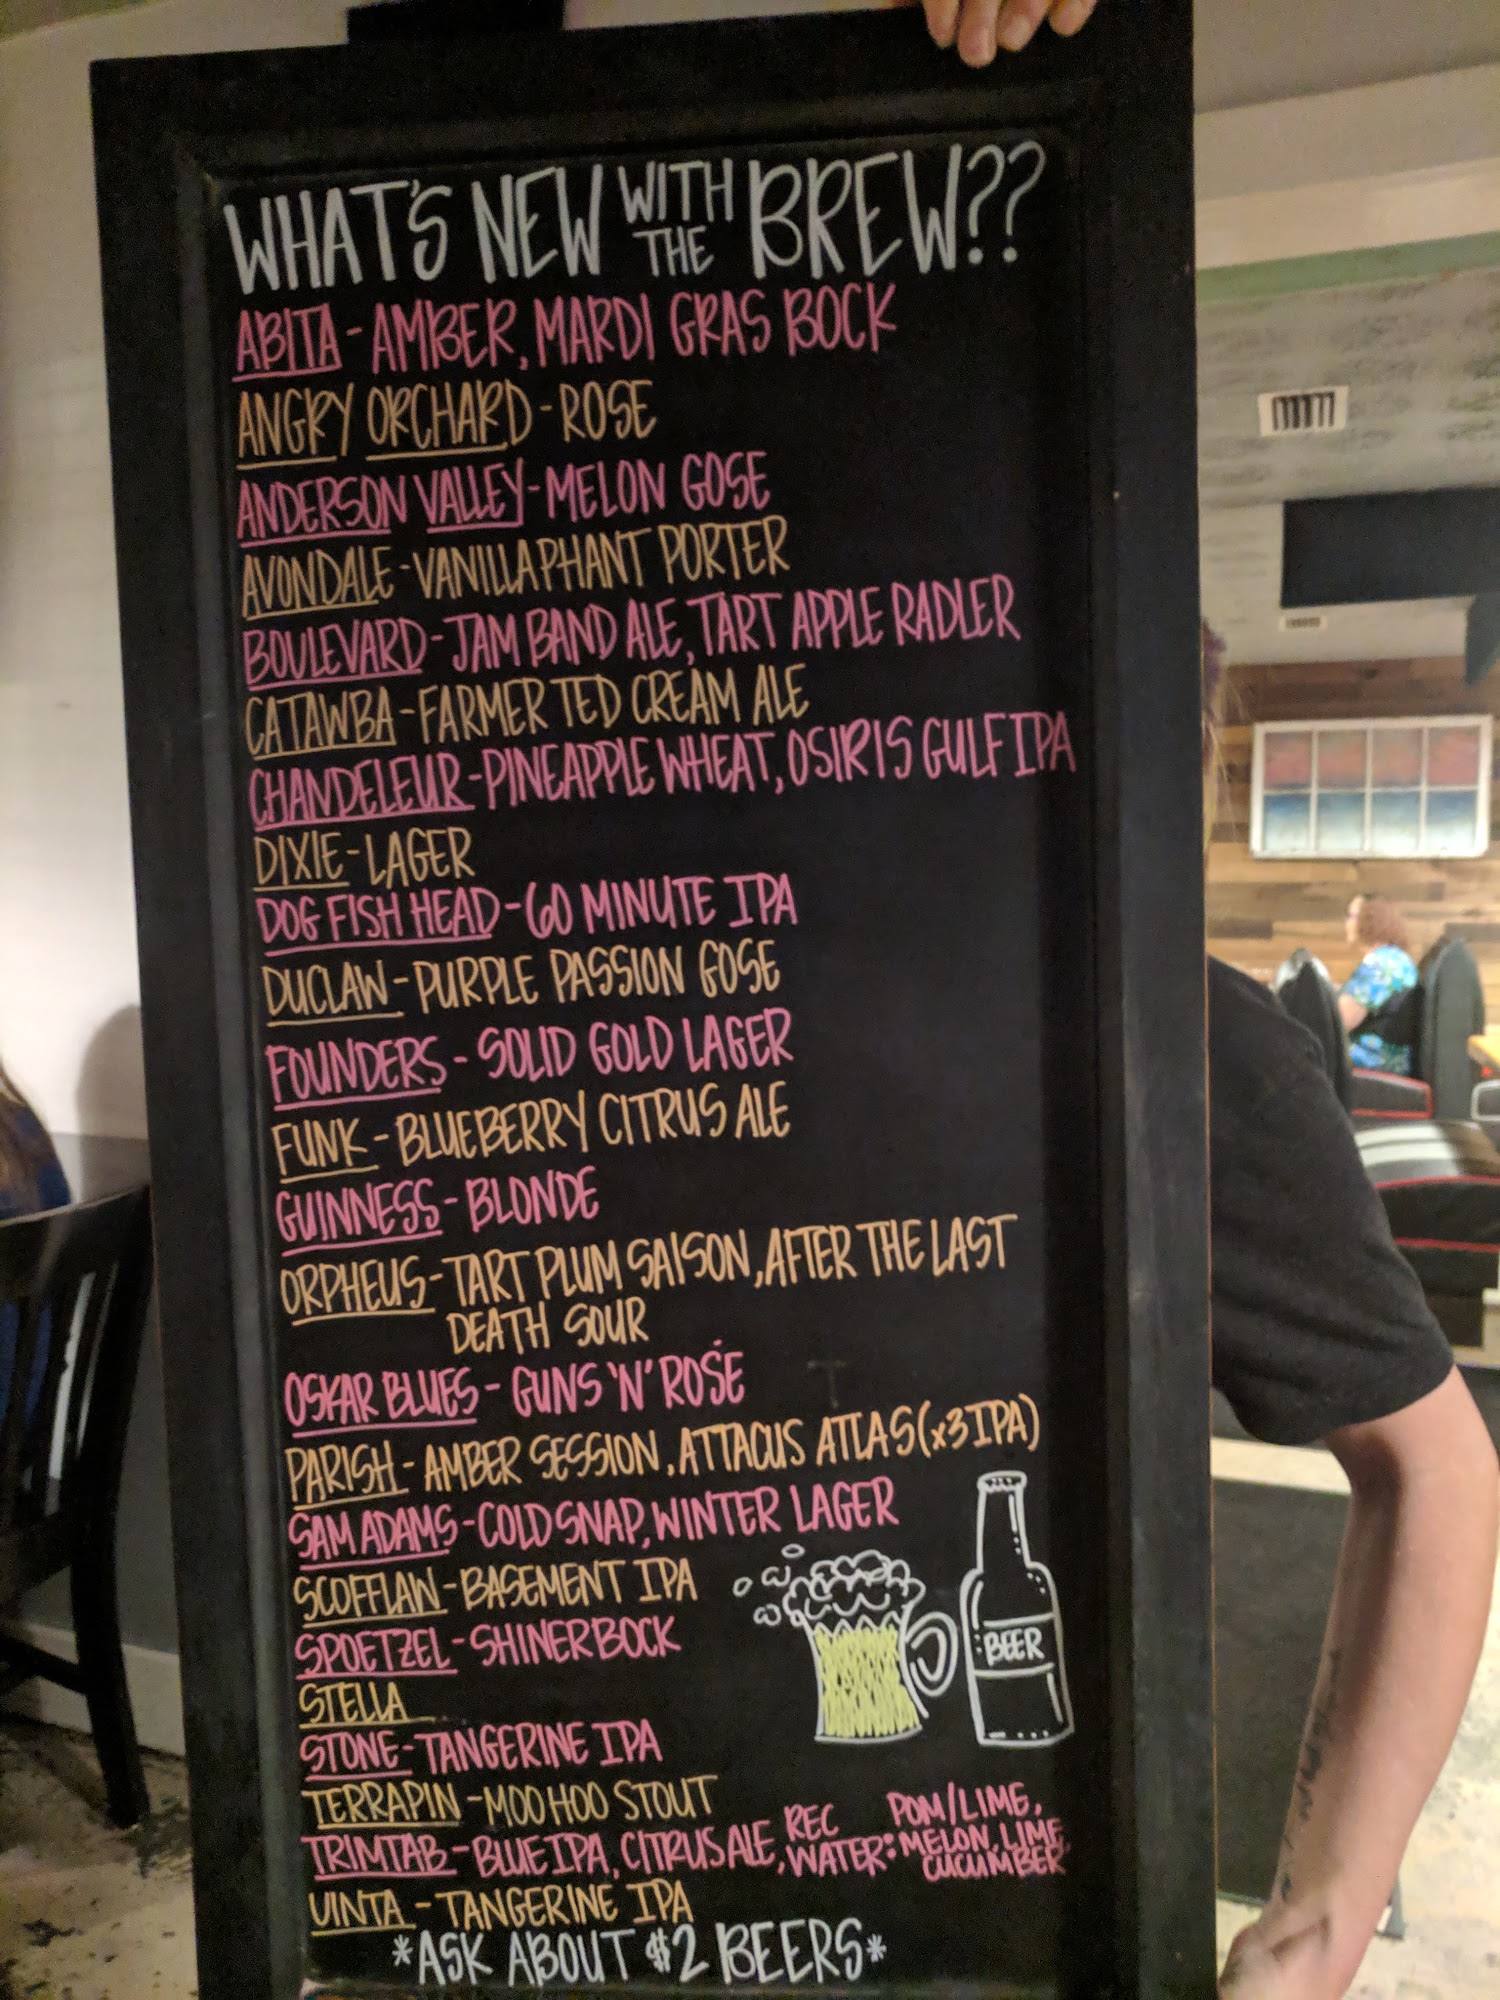 WHAT'S NEW WITH THE BREW??
ABITA - AMBER, MARDI GRAS BOCK
ANGRY ORCHARD - ROSE
ANDERSON VALLEY - MELON GOSE
AVONDALE - VANILLAPHANT PORTER
BOULEVARD - JAM BAND ALE, TART APPLE RADLER
CATAWBA - FARMER TED CREAM ALE
CHANDELEUR - PINEAPPLE WHEAT, OSIRIS GULF IPA
DIXIE - LAGER
DOG FISH HEAD - 60 MINUTE IPA
DUCLAW - PURPLE PASSION GOSE
FOUNDERS - SOLID GOLD LAGER
FUNK - BLUEBERRY CITRUS ALE
GUINNESS - BLONDE
ORPHEUS - TART PLUM SAISON, AFTER THE LAST
DEATH SOUR
OSKAR BLUES - GUNS 'N' ROSÉ
PARISH - AMBER SESSION, ATTACUS ATLAS (x3 IPA)
SAM ADAMS - COLD SNAP, WINTER LAGER
SCOFFLAW - BASEMENT IPA
SPOETZEL - SHINER BOCK
BEER
STELLA
STONE - TANGERINE IPA
TERRAPIN - MOO HOO STOUT
TRIMTAB - BLUE IPA, CITRUS ALE, REC WATER: POM/LIME,
MELON, LIME,
CUCUMBER
UINTA - TANGERINE IPA
*ASK ABOUT $2 BEERS*